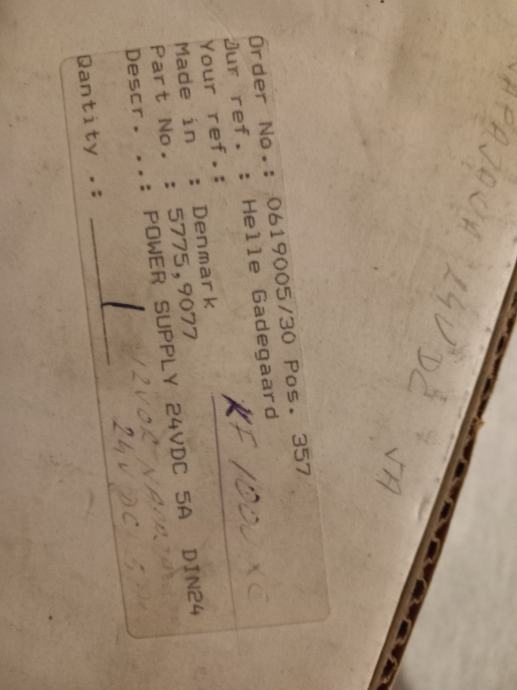 Order No.: 0619005/30 Pos. 357
Our ref. : Helle Gadegaard
Your ref.:
Made in : Denmark
Part No. : 5775,9077
Descr. ..: POWER SUPPLY 24VDC 5A DIN24
Qantity .: 1
24VDC